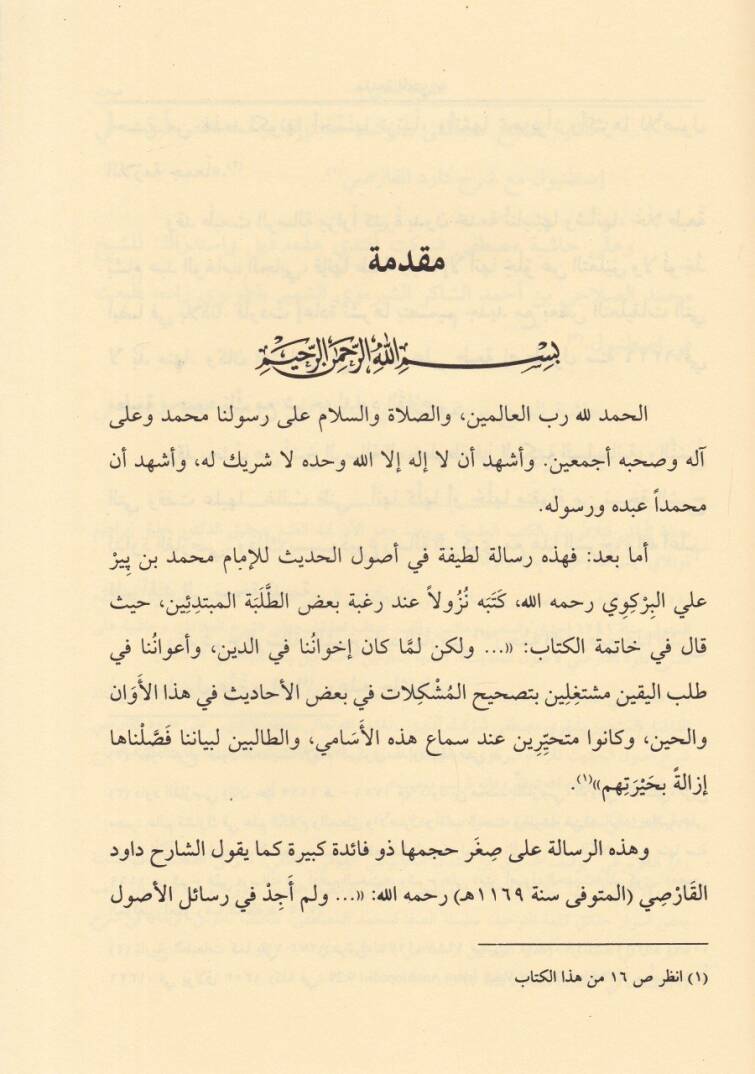 مقدمة
بسم الله الرحمن الرحيم
الحمد لله رب العالمين، والصلاة والسلام على رسولنا محمد وعلى
آله وصحبه أجمعين. وأشهد أن لا إله إلا الله وحده لا شريك له، وأشهد أن
محمداً عبده ورسوله.
أما بعد: فهذه رسالة لطيفة في أصول الحديث للإمام محمد بن پِيرْ
علي البِرْكِوي رحمه الله، كَتَبَه نُزُولاً عند رغبة بعض الطَّلَبَة المبتدِئِين، حيث
قال في خاتمة الكتاب: «... ولكن لمَّا كان إخوانُنا في الدين، وأعوانُنا في
طلب اليقين مشتغِلِين بتصحيح المُشْكِلات في بعض الأحاديث في هذا الأَوَان
والحين، وكانوا متحيِّرِين عند سماع هذه الأَسَامي، والطالبين لبياننا فَصَّلْناها
إزالةً بحَيْرَتِهم»(١).
وهذه الرسالة على صِغَر حجمها ذو فائدة كبيرة كما يقول الشارح داود
القَارْصِي (المتوفى سنة ١١٦٩هـ) رحمه الله: «... ولم أَجِدْ في رسائل الأصول
(١) انظر ص ١٦ من هذا الكتاب